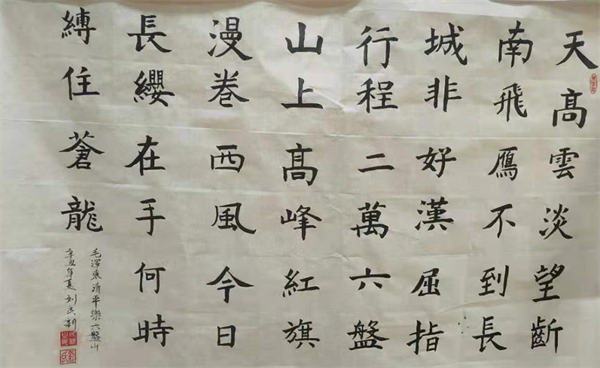 天髙雲淡望斷
南飛鴈不到長
城非好漢屈指
行程二萬六盤
山上髙峰紅旗
漫卷西風今日
長纓在手何時
縛住蒼龍
毛澤東清平樂六盤山
辛丑年夏刘